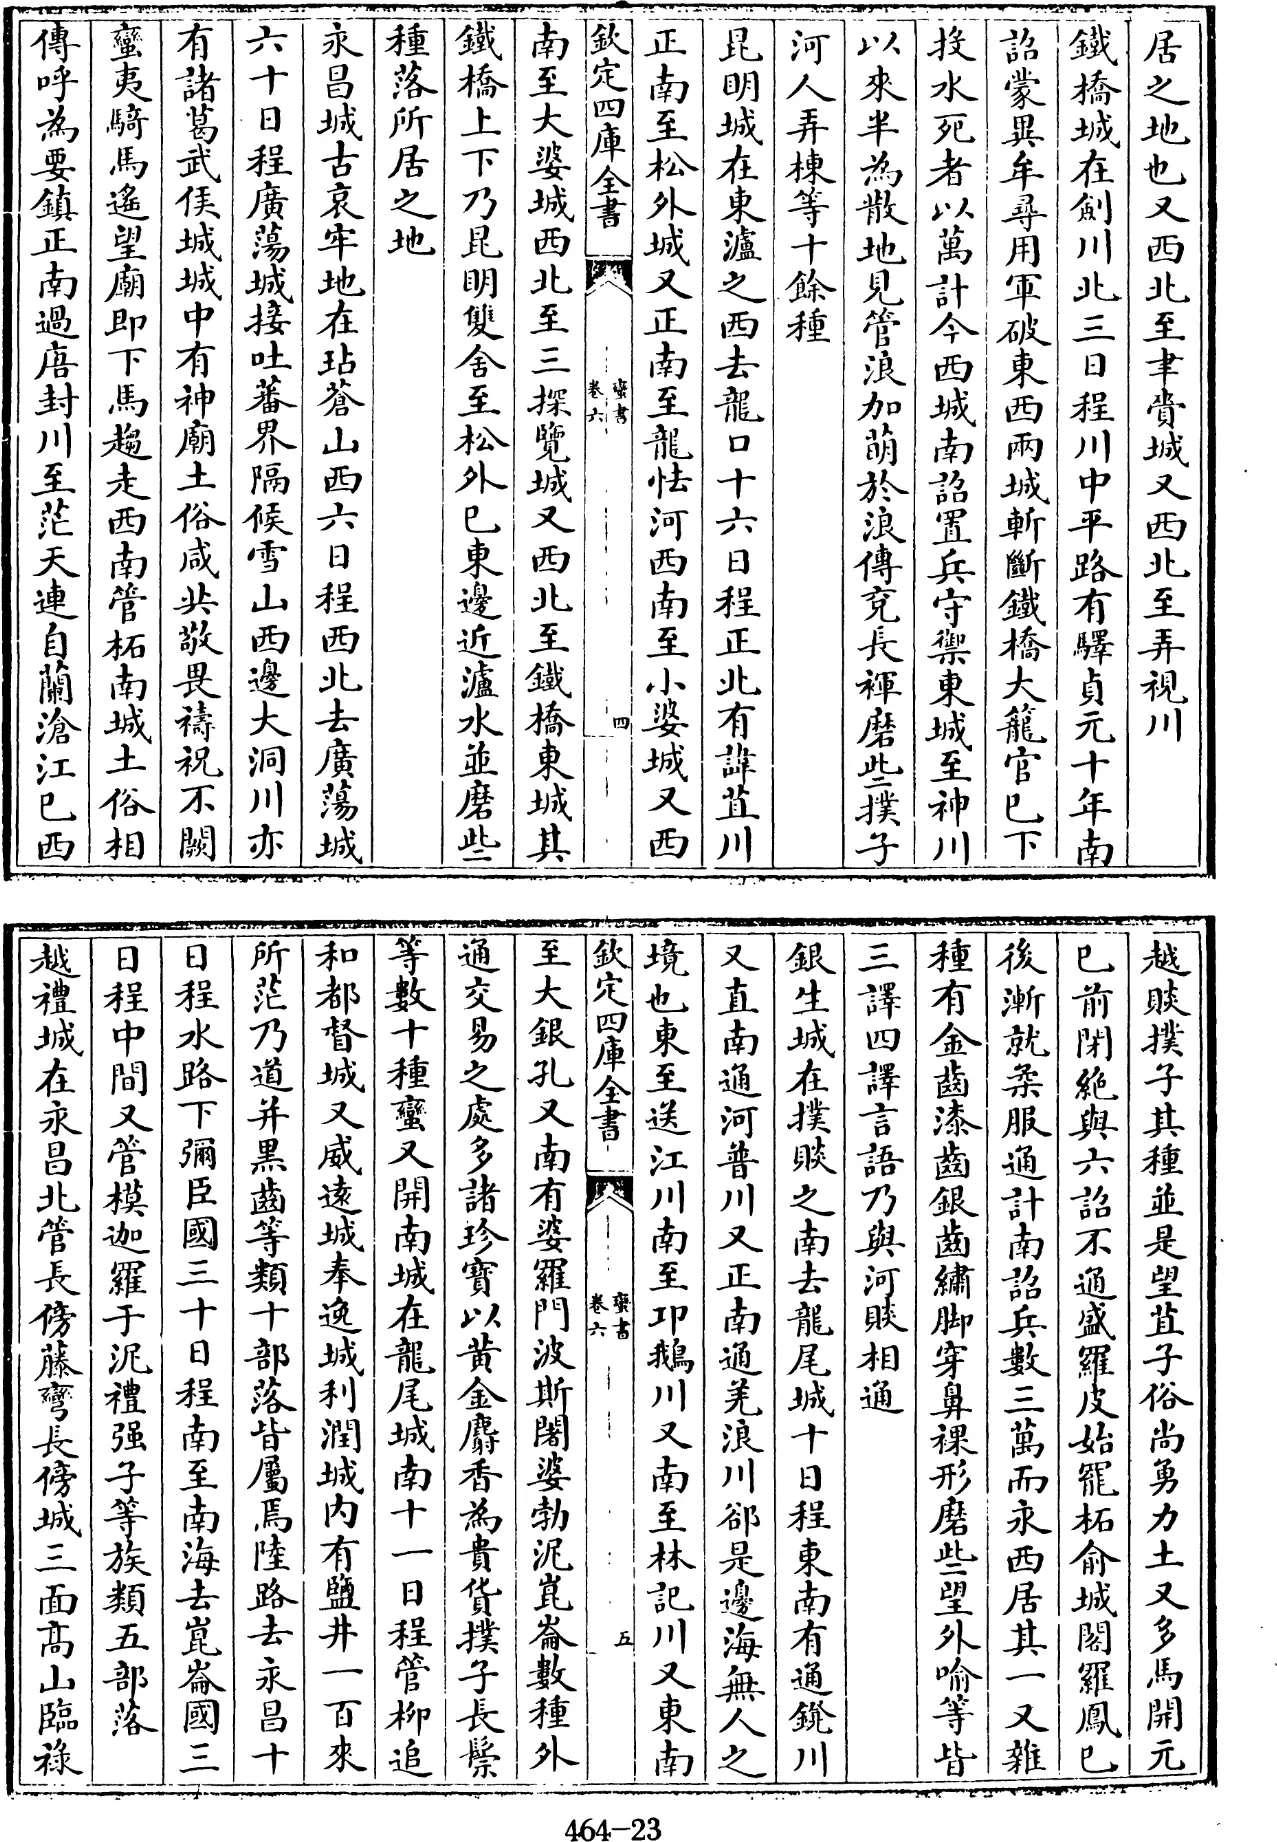 居之地也又西北至聿賫城又西北至弄視川
鐵橋城在劍川北三日程川中平路有驛貞元十年南
詔蒙異牟尋用軍破東西兩城斬斷鐵橋大籠官已下
投水死者以萬計今西城南詔置兵守禦東城至神川
以來半為散地見管浪加萌於浪傳兗長褌磨些撲子
河人弄棟等十餘種
昆明城在東瀘之西去龍口十六日程正北有諱苴川
正南至松外城又正南至龍怯河西南至小婆城又西
欽定四庫全書
蠻書
卷六
四
南至大婆城西北至三探覽城又西北至鐵橋東城其
鐵橋上下乃昆明雙舍至松外已東邊近瀘水並磨些
種落所居之地
永昌城古哀牢地在玷蒼山西六日程西北去廣蕩城
六十日程廣蕩城接吐蕃界隔候雪山西邊大洞川亦
有諸葛武侯城城中有神廟土俗咸共敬畏禱祝不闕
蠻夷騎馬遙望廟即下馬趨走西南管柘南城土俗相
傳呼為要鎮正南過唐封川至茫天連自蘭滄江已西
越賧撲子其種並是望苴子俗尚勇力土又多馬開元
已前閉絶與六詔不通盛羅皮始罷柘俞城閣羅鳳已
後漸就柔服通計南詔兵數三萬而永西居其一又雜
種有金齒漆齒銀齒繡脚穿鼻裸形磨些望外喻等皆
三譯四譯言語乃與河賧相通
銀生城在撲賧之南去龍尾城十日程東南有通鐙川
又直南通河普川又正南通羌浪川郤是邊海無人之
境也東至送江川南至邛鵝川又南至林記川又東南
欽定四庫全書
蠻書
卷六
五
至大銀孔又南有婆羅門波斯闍婆勃泥崑崙數種外
通交易之處多諸珍寶以黄金麝香為貴貨撲子長鬃
等數十種蠻又開南城在龍尾城南十一日程管柳追
和都督城又威遠城奉逸城利潤城内有鹽井一百來
所茫乃道并黒齒等類十部落皆屬焉陸路去永昌十
日程水路下彌臣國三十日程南至南海去崑崙國三
日程中間又管模迦羅于泥禮强子等族類五部落
越禮城在永昌北管長傍藤彎長傍城三面髙山臨祿
464-23